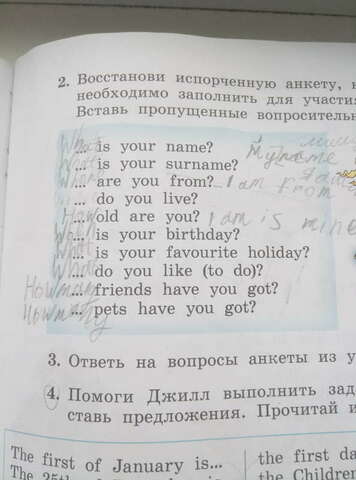 2. Восстанови испорченную анкету, к
необходимо заполнить для участи
Вставь пропущенные вопросительн
What ... is your name? My name
What ... is your surname?
... are you from? I am from
... do you live?
How ... old are you? I am is nine
... is your birthday?
What ... is your favourite holiday?
What ... do you like (to do)?
How many ... friends have you got?
How many ... pets have you got?
3. Ответь на вопросы анкеты из у
4. Помоги Джилл выполнить зад
ставь предложения. Прочитай и
The first of January is... the first da
The 25th the Children